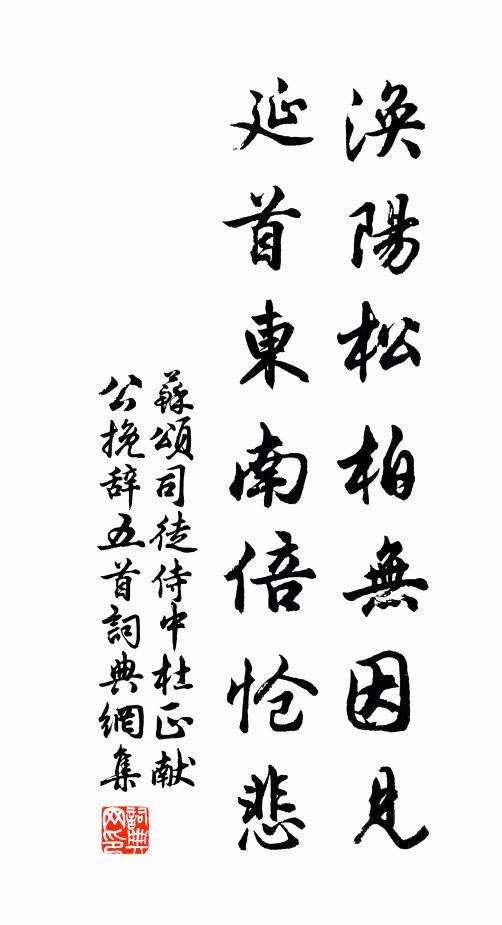 渙陽松柏無因見
延首東南倍怆悲
蘇頌司徒侍中杜正献
公挽辞五首詞典網集
詞典
网印